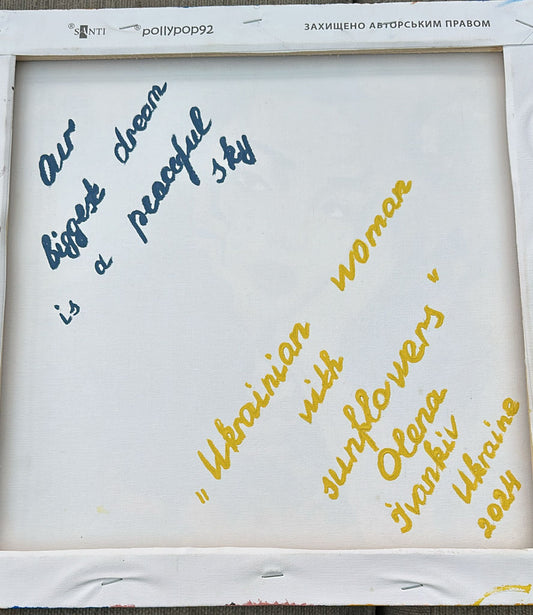 ®SANTI ®pollypop92 ЗАХИЩЕНО АВТОРСЬКИМ ПРАВОМ
Our
biggest dream
is a peaceful
sky
"Ukrainian woman
with
sunflowers"
Olena
Ivankiv
Ukraine
2024